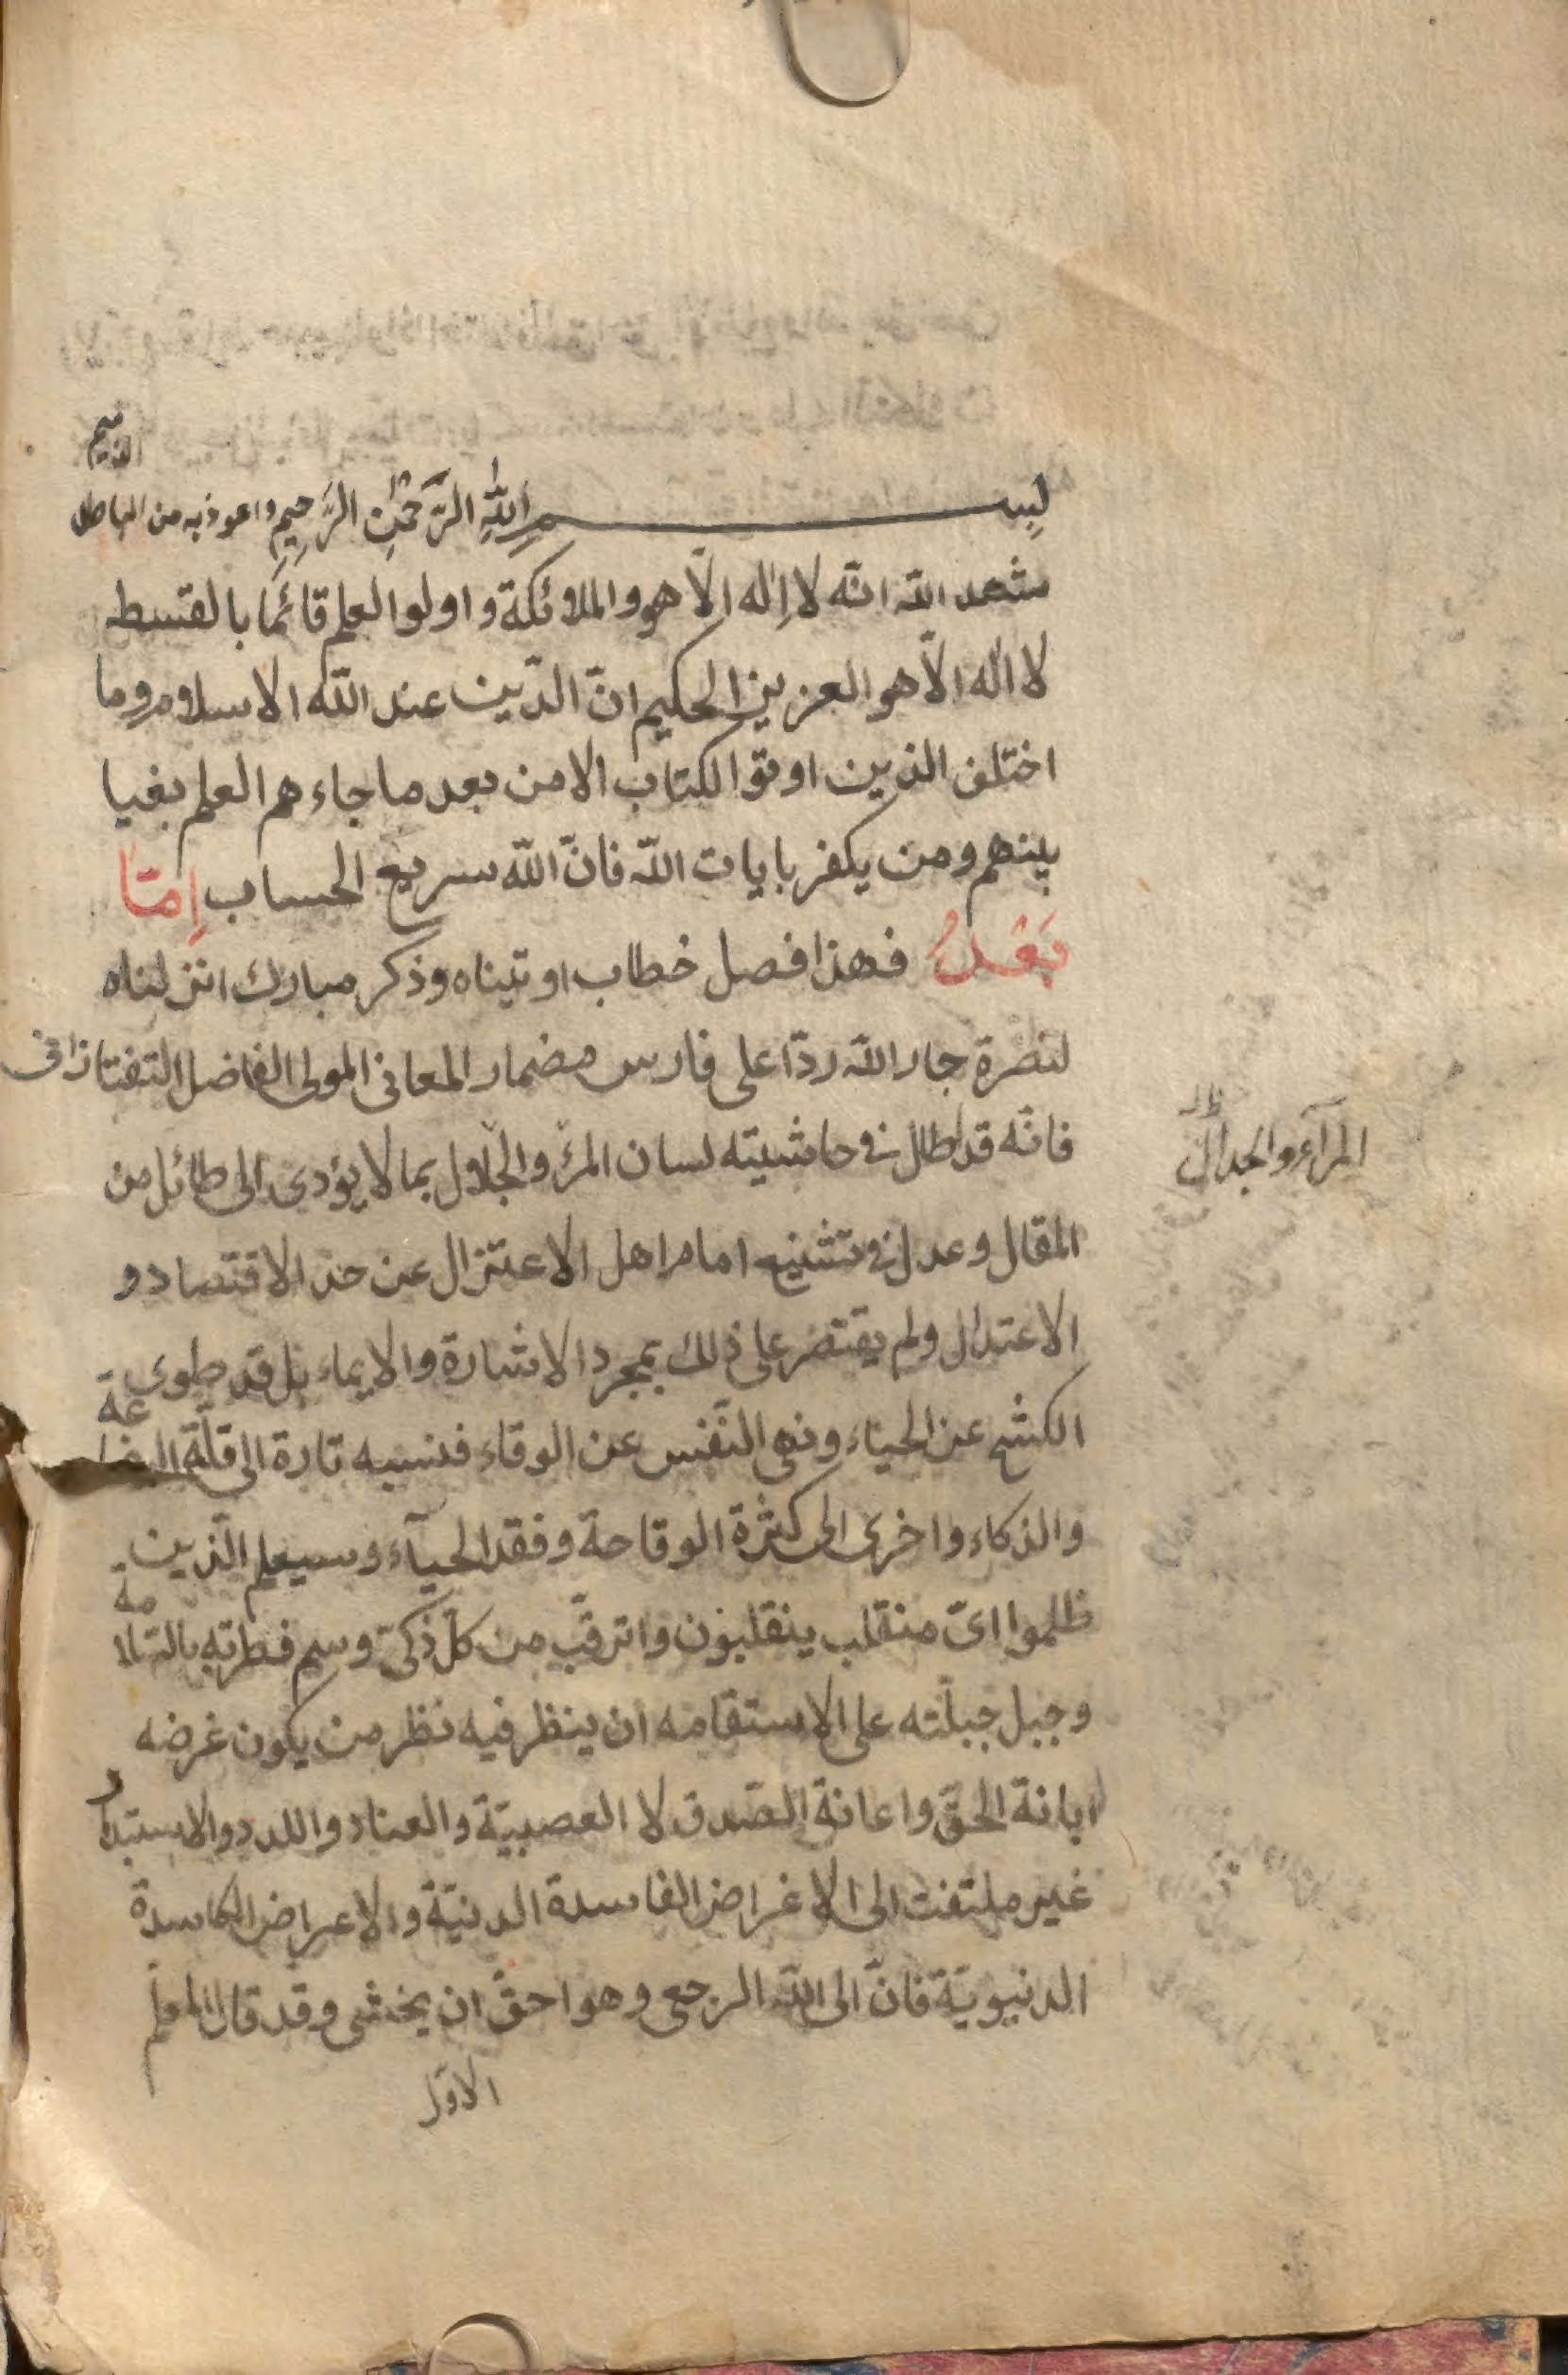 بسم الله الرحمن الرحيم واعوذ به من الباطل الذميم
شهد الله انه لا اله الا هو والملائكة واولوا العلم قائما بالقسط
لا اله الا هو العزيز الحكيم ان الدين عند الله الاسلام وما
اختلف الذين اوتوا الكتاب الا من بعد ما جاءهم العلم بغيا
بينهم ومن يكفر بايات الله فان الله سريع الحساب اما
بعد فهذا فصل خطاب اوتيناه وذكر مبارك انزلناه
لنصرة جار الله ردا على فارس مضمار المعانى المولى الفاضل التفتازانى
فانه قد اطال فى حاشيته لسان المرء والجلال بما لا يؤدى الى طائل من
المراء والجدال ظ
المقال وعدل فى تشنيع امام اهل الاعتزال عن حد الاقتصاد و
الاعتدال ولم يقتصر على ذلك بمجرد الاشارة والايماء بل قد طوى
الكشح عن الحياء ونهى النفس عن الوقاء فنسبه تارة الى قلة البضاعة
والذكاء واخرى الى كثرة الوقاحة وفقد الحيآء وسيعلم الذين
ظلموا اى منقلب ينقلبون واترقب من كل ذكى وسم فطرته بالسلامة
وجبل جبلته على الاستقامه ان ينظر فيه نظر من يكون غرضه
ابانة الحق واعانة الصدق لا العصبية والعناد واللدد والاستبداد
غير ملتفت الى الاغراض الفاسدة الدنية والاعراض الكاسدة
الدنيوية فان الى الله الرجعى وهو احق ان يخشى وقد قال المعلم
الاول